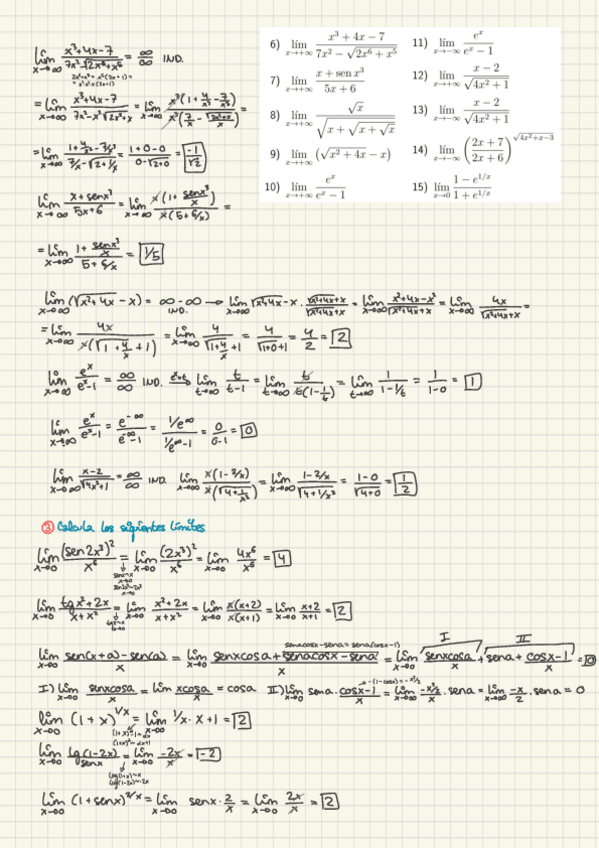 6) lím x→+∞ (x³ + 4x − 7)/(7x² − √(2x⁶ + x⁵))
7) lím x→+∞ (x + sen x³)/(5x + 6)
8) lím x→+∞ √x/√(x + √(x + √x))
9) lím x→+∞ (√(x² + 4x) − x)
10) lím x→+∞ eˣ/(eˣ − 1)
11) lím x→−∞ eˣ/(eˣ − 1)
12) lím x→+∞ (x − 2)/√(4x² + 1)
13) lím x→−∞ (x − 2)/√(4x² + 1)
14) lím x→+∞ ((2x + 7)/(2x + 6))^√(4x²+x−3)
15) lím x→0 (1 − e^(1/x))/(1 + e^(1/x))
lím x→∞ (x³+4x−7)/(7x²−√(2x⁶+x⁵)) = ∞/∞ IND.
= lím x→∞ (x³+4x−7)/(7x²−x²√(2x²+x)) = lím x→∞ x³(1+4/x²−7/x³)/x³(7/x−√(2x²+x)/x) =
= lím x→∞ (1+4/x²−7/x³)/(7/x−√(2+1/x)) = (1+0−0)/(0−√(2+0)) = −1/√2
lím x→∞ (x+senx³)/(5x+6) = lím x→∞ x(1+senx³/x)/x(5+6/x) =
= lím x→∞ (1+senx³/x)/(5+6/x) = 1/5
lím x→∞ (√(x²+4x) −x) = ∞−∞ IND. → lím x→∞ √(x²+4x)−x · (√(x²+4x)+x)/(√(x²+4x)+x) = lím x→∞ (x²+4x−x²)/(√(x²+4x)+x) = lím x→∞ 4x/(√(x²+4x)+x) =
= lím x→∞ 4x/x(√(1+4/x)+1) = lím x→∞ 4/(√(1+4/x)+1) = 4/(√(1+0)+1) = 4/2 = 2
lím x→∞ eˣ/(eˣ−1) = ∞/∞ IND. eˣ=t → lím t→∞ t/(t−1) = lím t→∞ t/t(1−1/t) = lím t→∞ 1/(1−1/t) = 1/(1−0) = 1
lím eˣ/(eˣ−1) = e^−∞/(e^−∞−1) = (1/e^∞)/(1/e^∞−1) = 0/(0−1) = 0
lím x→∞ (x−2)/√(4x²+1) = ∞/∞ IND. lím x→∞ x(1−2/x)/x(√(4+1/x²)) = lím x→∞ (1−2/x)/√(4+1/x²) = (1−0)/√(4+0) = 1/2
③ Calcula los siguientes límites
lím x→0 (sen2x³)²/x⁶ = lím x→0 (2x³)²/x⁶ = lím x→0 4x⁶/x⁶ = 4
senx~x x→0
sen2x³~2x³
lím x→0 (tgx²+2x)/(x+x²) = lím x→0 (x²+2x)/(x+x²) = lím x→0 x(x+2)/x(x+1) = lím x→0 (x+2)/(x+1) = 2
senacosx−sena=sena(cosx−1)
lím x→0 (sen(x+a)−sen(a))/x = lím x→0 (senxcosa+senacosx−sena)/x = lím x→0 I senxcosa/x + II sena · (cosx−1)/x =
I) lím x→0 senxcosa/x = lím x→0 xcosa/x = cosa II) lím x→0 sena · (cosx−1)/x = lím x→0 (−x²/2)/x · sena = lím x→0 −x/2 · sena = 0
lím x→0 (1+x)^(1/x) = lím x→0 1/x · x+1 = 2
lím x→0 lg(1−2x)/senx = lím x→0 −2x/x = −2
lím x→0 (1+senx)^(2/x) = lím x→0 senx · 2/x = lím x→0 2x/x = 2